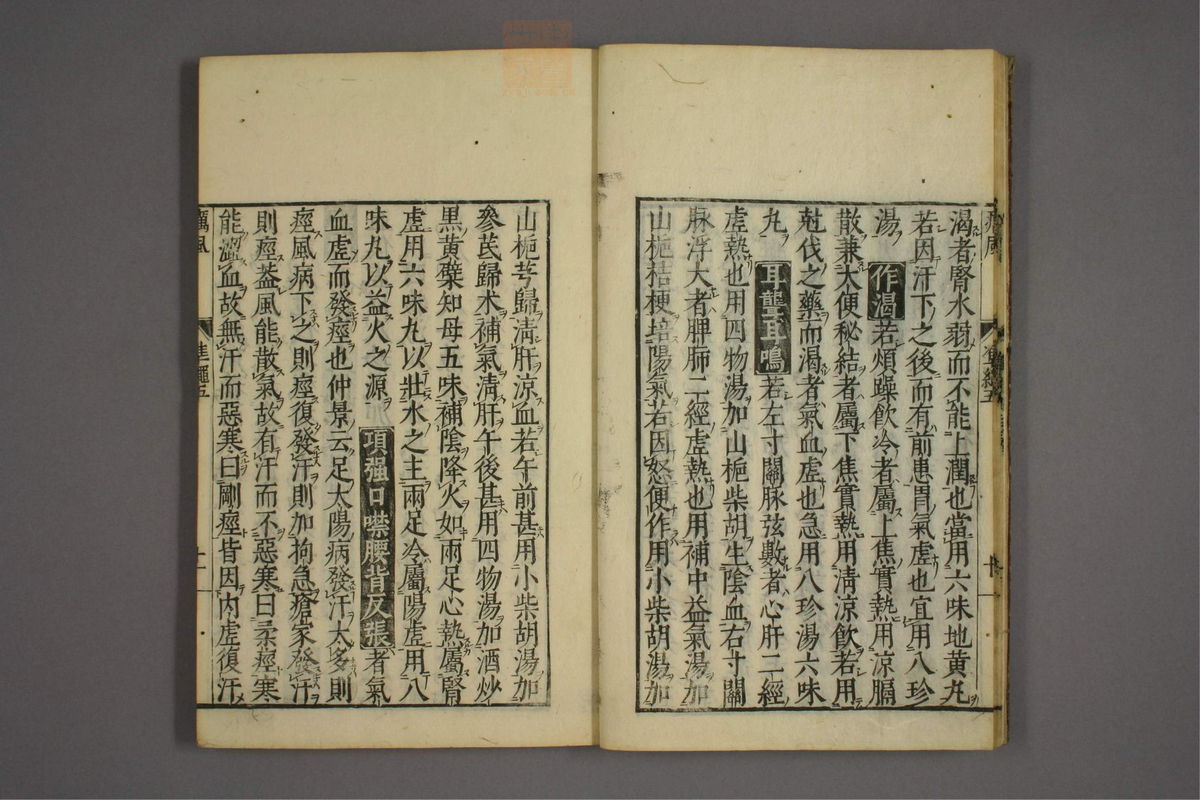 渴者腎水弱而不能上潤也當用六味地黃丸
若因汗下之後而有前患胃氣虛也宜用八珍
湯 作渴若煩躁飲冷者屬上焦實熱用涼膈
散兼大便秘結者屬下焦實熱用淸涼飮若用
尅伐之藥而渴者氣血虛也急用八珍湯六味
丸 耳聾耳鳴若左寸關脉弦數者心肝二經
虛熱也用四物湯加山梔柴胡生陰血右寸關
脉浮大者脾肺二經虛熱也用補中益氣湯加
山梔桔梗培陽氣若因怒便作用小柴胡湯加
山梔芎歸淸肝涼血若午前甚用小柴胡湯加
參芪歸朮補氣淸肝午後甚用四物湯加酒炒
黑黃蘗知母五味補陰降火如兩足心熱屬腎
虛用六味丸以壯水之主兩足冷屬陽虛用八
味丸以益火之源 項强口噤腰背反張者氣
血虛而發痙也仲景云足太陽病發汗太多則
痙風病下之則痙復發汗則加拘急瘡家發汗
則痙葢風能散氣故有汗而不惡寒曰柔痙寒
能澀血故無汗而惡寒曰剛痙皆因内虛復汗